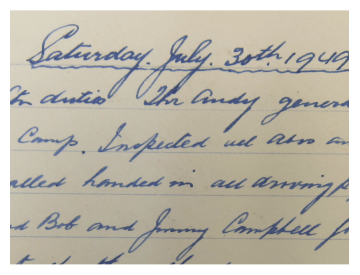 Saturday. July. 30th. 1949
duties The Andy genera
Camp. Inspected all and an
alled handed in all driving
d Bob and Jimmy Campbell fo